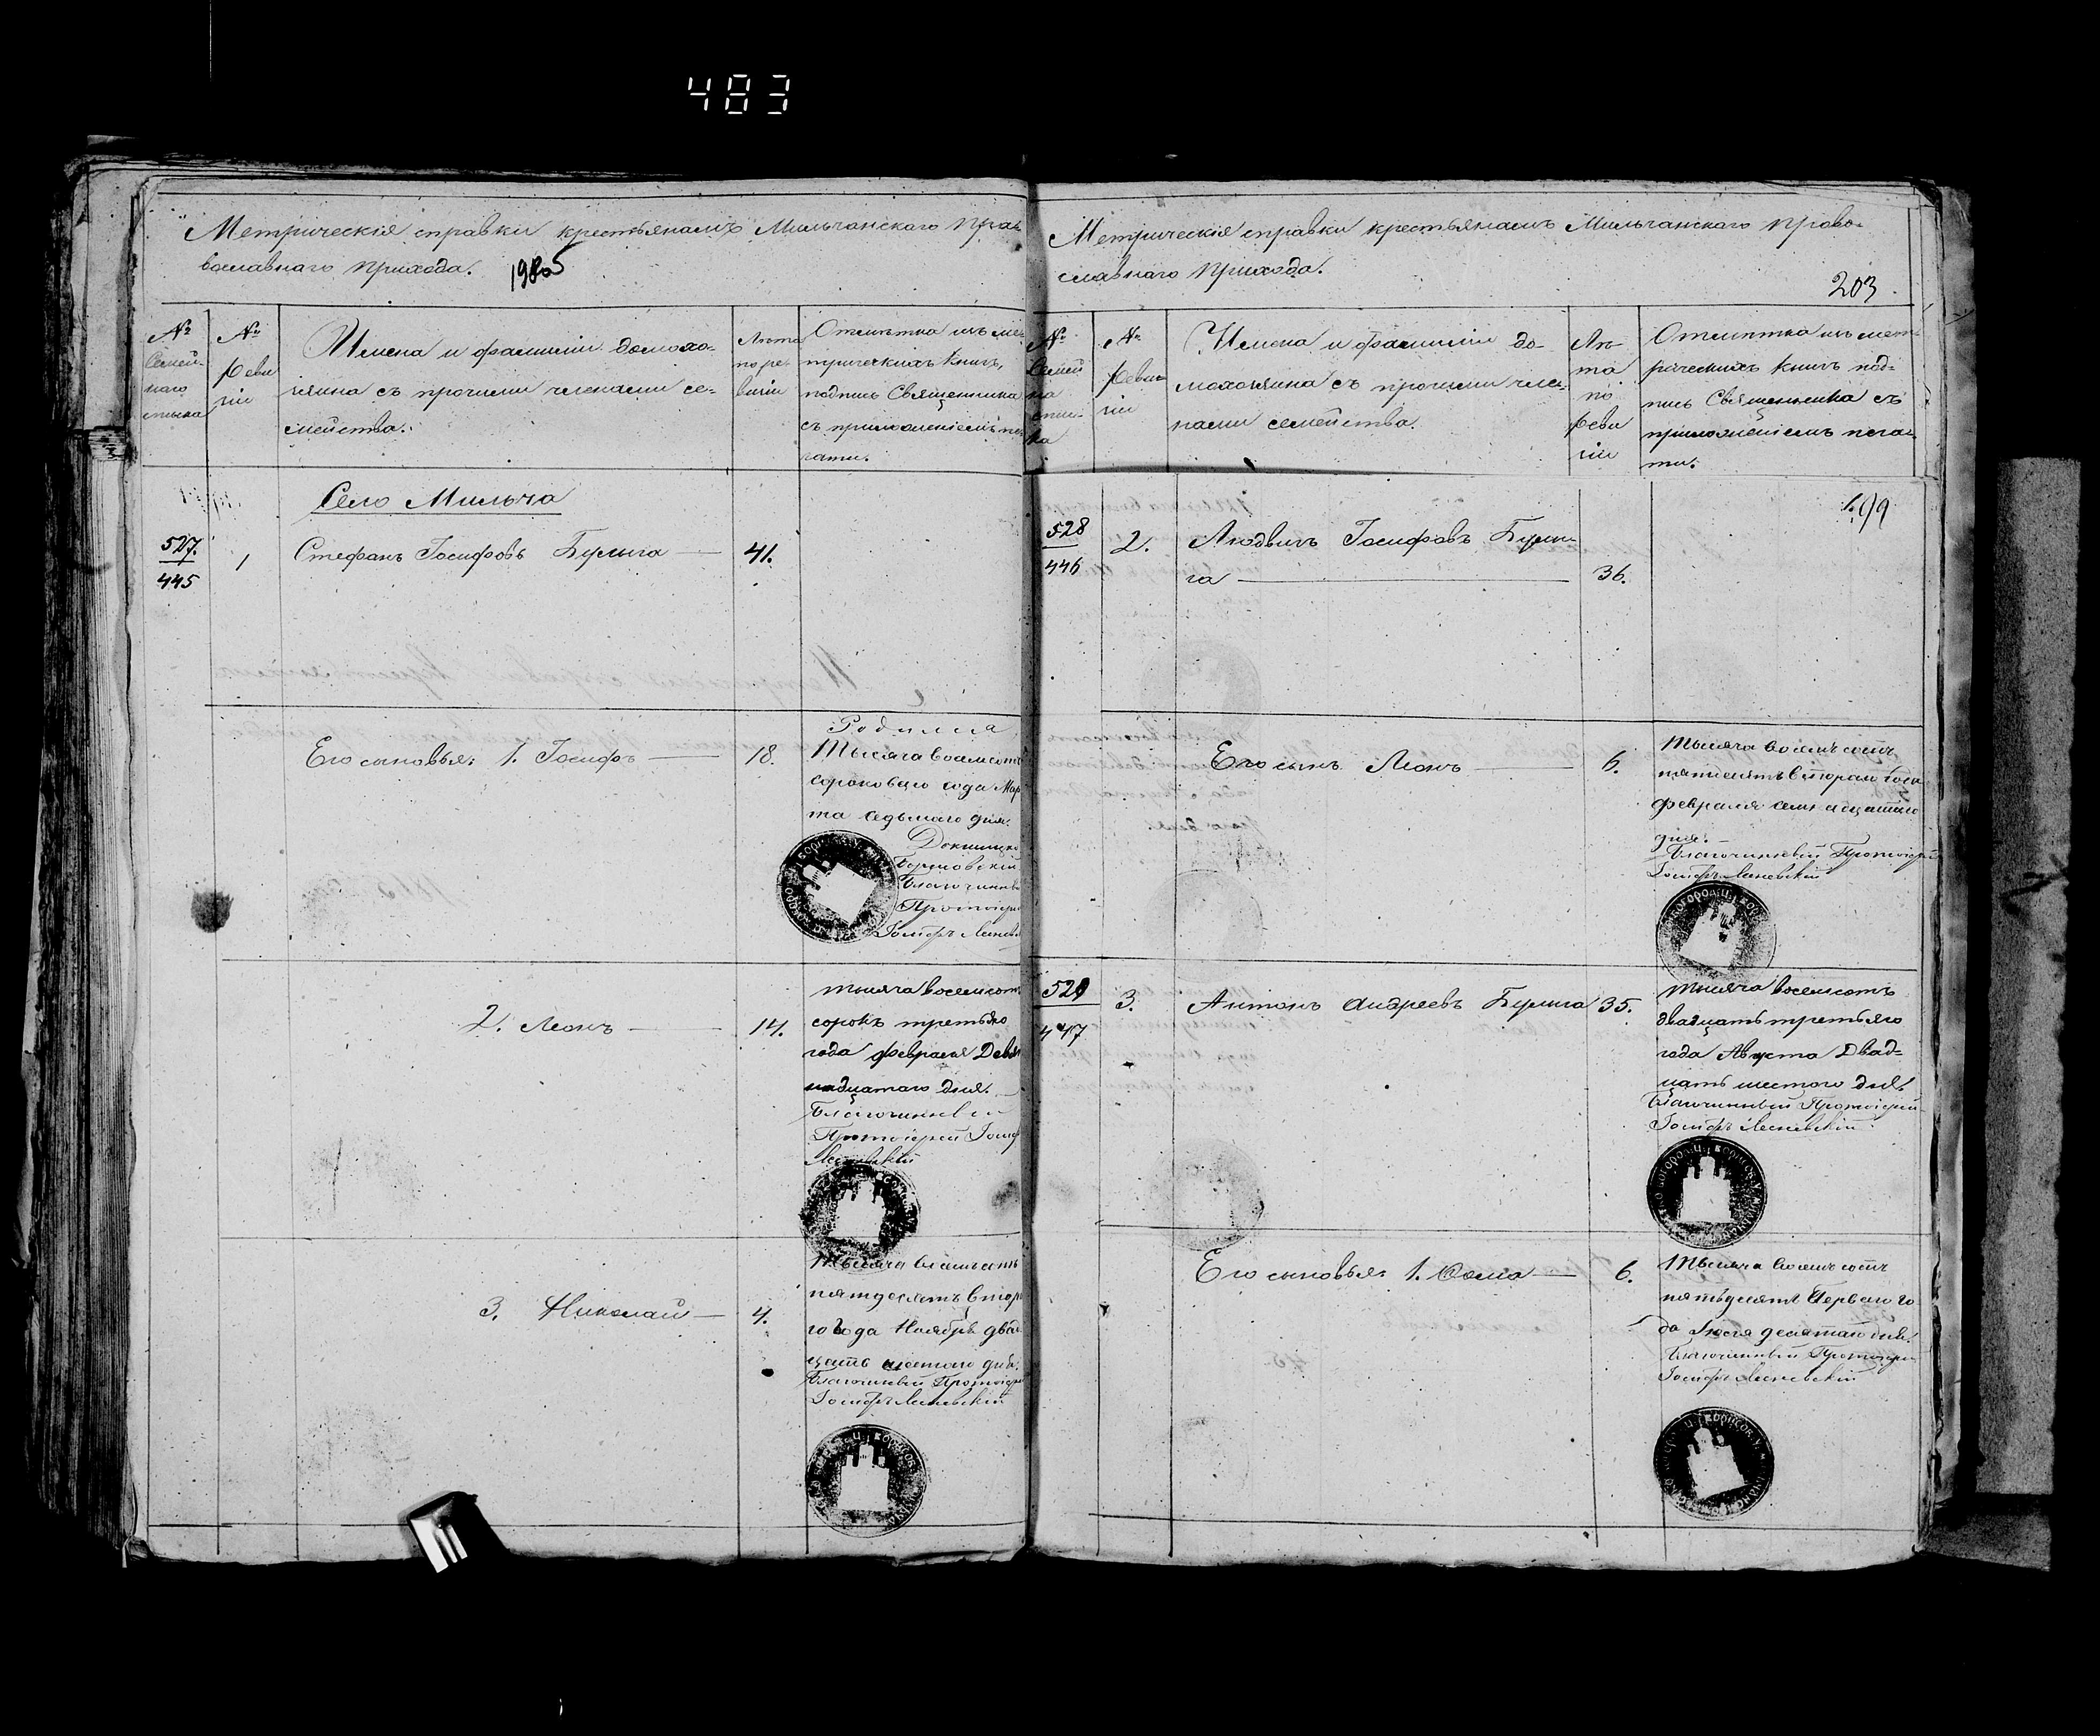 483
Метрическія справки крестьянамъ Мильчанскаго Пра-
вославнаго Прихода.
№
Семей-
наго
списка
№
Реви
зіи
Имена и фамиліи домохо-
зяина съ прочими членами се-
мейства.
Лѣта
по ре
визіи
Отмѣтка изъ ме-
трическихъ книгъ,
подпись Священника
съ приложеніемъ пе-
чати.
Село Мильча
527.
445
1
Стефанъ Іосифовъ Булыга
41.
Его сыновья: 1. Іосифъ
18.
Родился
Тысяча восемсотъ
сороковаго года Мар
та седьмаго дня.
Докшицко
Борисовскій
Благочинный
Протоіерей
Іосифъ
2. Леонъ
14.
тысяча восемсотъ
сорокъ третьяго
года февраля Девят
надцатаго дня.
Благочинный
Протоіерей Іосифъ
3. Николай
4.
Тысяча восемьсотъ
пятдесятъ втор
го года Ноября двад
цать шестого дня.
Благочинный Протоіерей
Іосифъ
Метрическія справки крестьянамъ Мильчанскаго Право-
славнаго Прихода.
203
№
Семей
на
спис-
ка
№
Реви
зіи
Имена и фамиліи до-
мохозяина съ прочими чле-
нами семейства.
Лѣ-
та
по
Реви
зіи
Отмѣтка изъ мет
рическихъ книгъ под-
пись Священника съ
приложеніемъ печа-
ти.
528
446
2.
Людвигъ Іосифовъ Булы-
га
36.
Его сынъ Леонъ
6.
Тысяча восемьсотъ
пятдесятъ втораго года
февраля семнадцатаго
дня.
Благочинный Протоіерей
Іосифъ
529
447
3.
Антонъ Андреевъ Булыга
35.
Тысяча восемсотъ
двадцать третьяго
года Августа Двад-
цать шестого дня.
Благочинный Протоіерей
Іосифъ
Его сыновья: 1. Ѳома
6.
Тысяча восемьсотъ
пятьдесятъ Перваго го
да Іюля десятаго дня.
Благочинный Протоіерей
Іосифъ